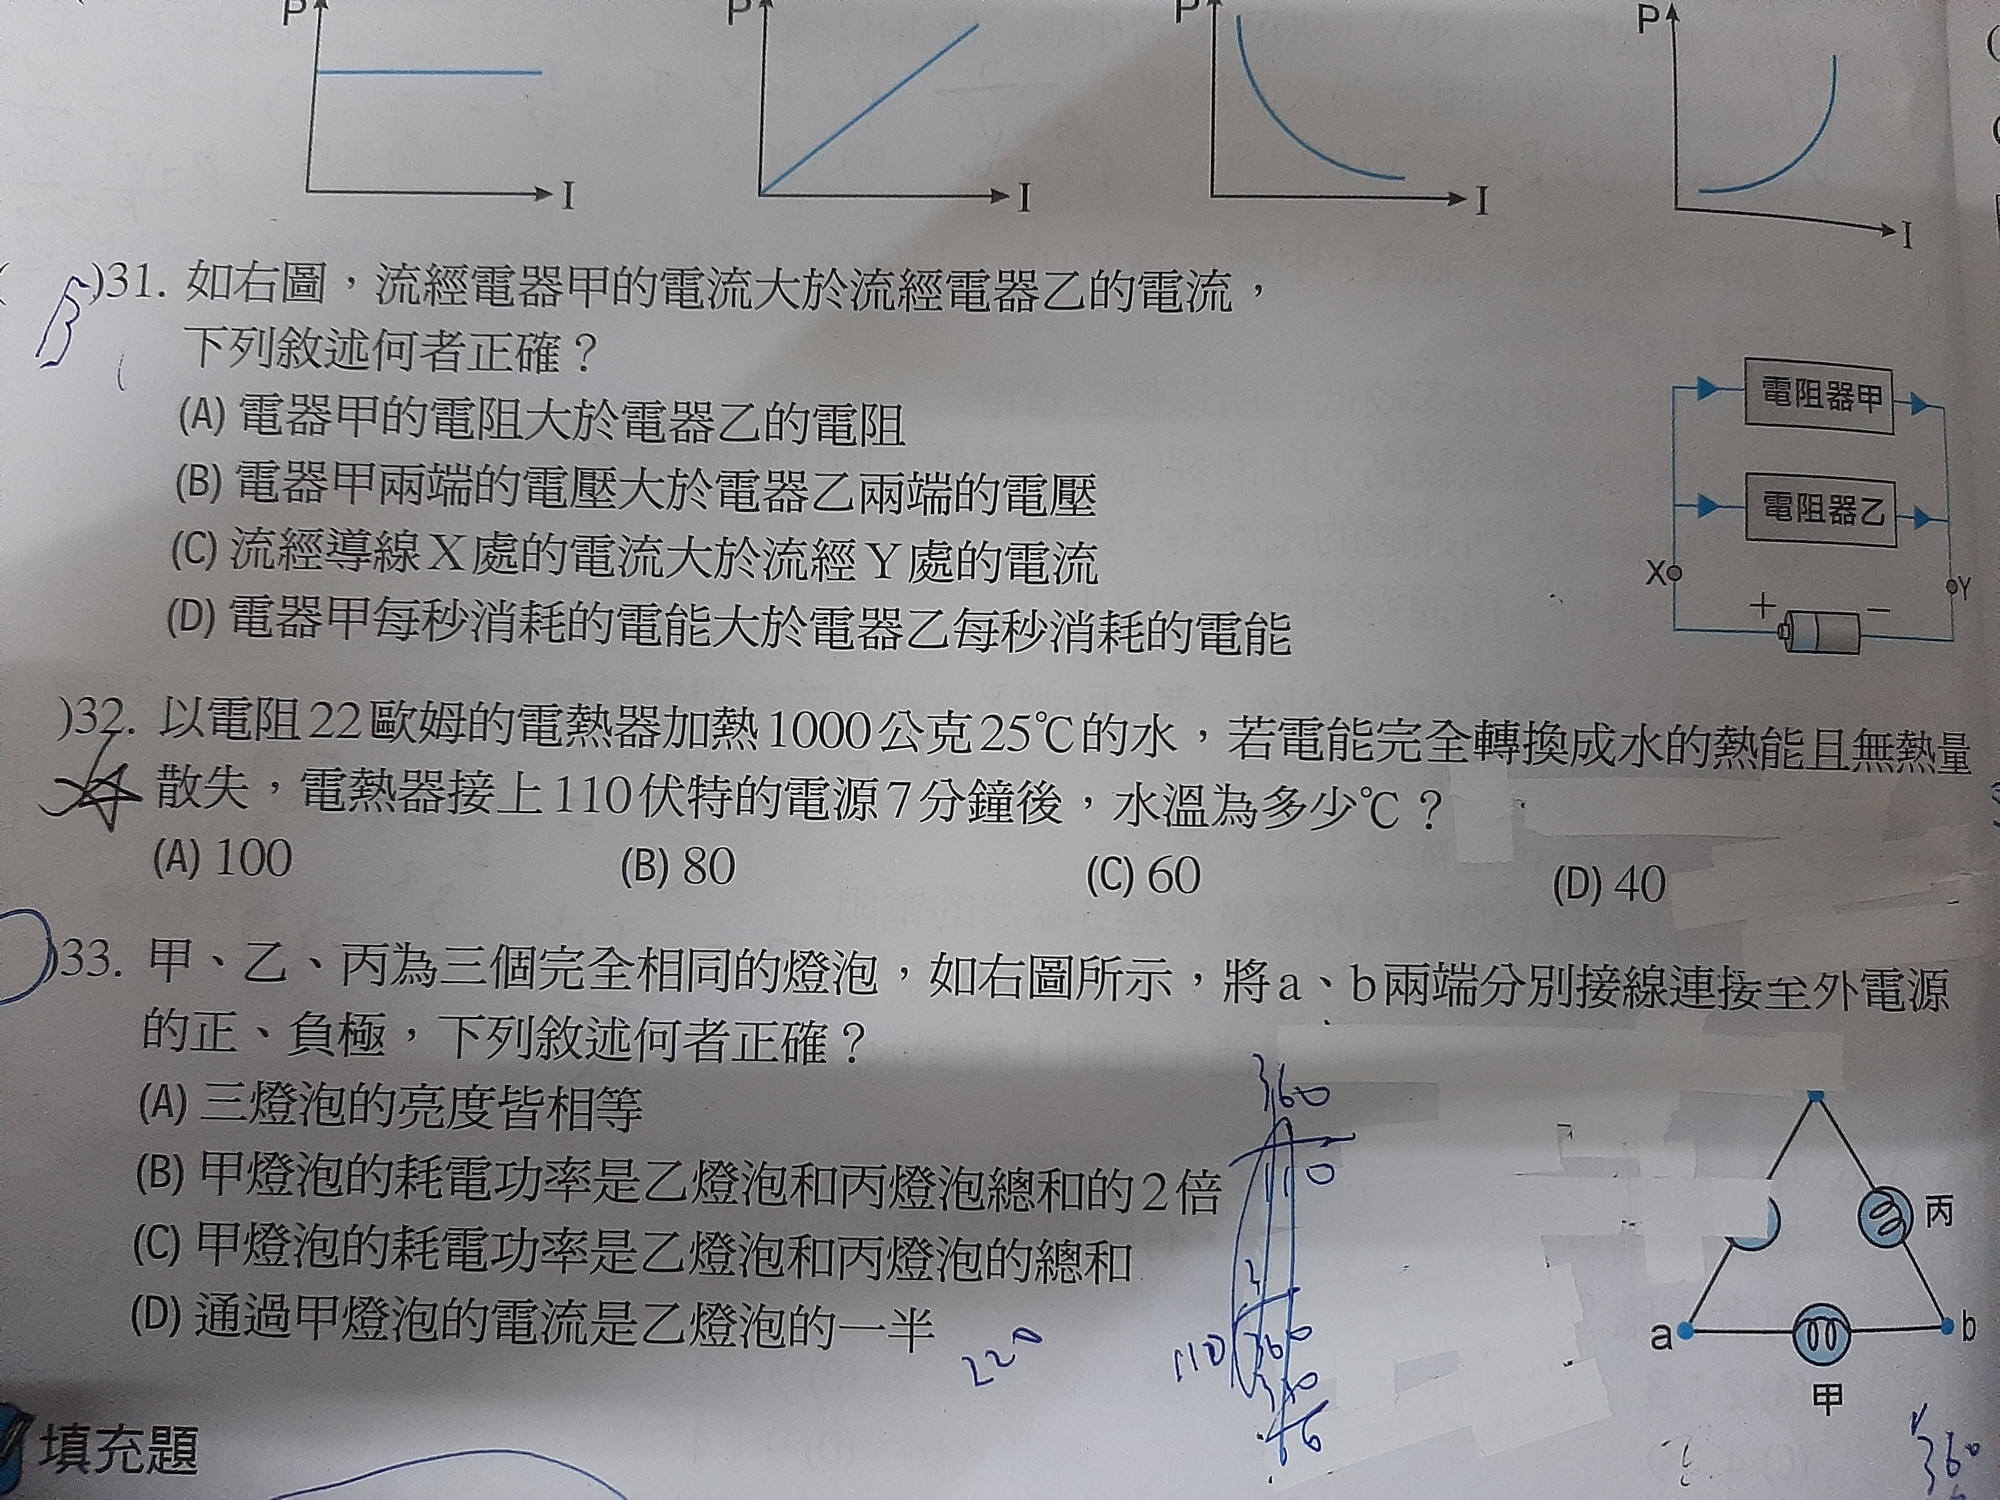 P P P P
I I I I
B )31. 如右圖，流經電器甲的電流大於流經電器乙的電流，
下列敘述何者正確？
(A) 電器甲的電阻大於電器乙的電阻
(B) 電器甲兩端的電壓大於電器乙兩端的電壓
(C) 流經導線X處的電流大於流經Y處的電流
(D) 電器甲每秒消耗的電能大於電器乙每秒消耗的電能
電阻器甲
電阻器乙
X Y
+ −
)32. 以電阻22歐姆的電熱器加熱1000公克25℃的水，若電能完全轉換成水的熱能且無熱量
散失，電熱器接上110伏特的電源7分鐘後，水溫為多少℃？
(A) 100 (B) 80 (C) 60 (D) 40
)33. 甲、乙、丙為三個完全相同的燈泡，如右圖所示，將a、b兩端分別接線連接至外電源
的正、負極，下列敘述何者正確？
(A) 三燈泡的亮度皆相等
(B) 甲燈泡的耗電功率是乙燈泡和丙燈泡總和的2倍
(C) 甲燈泡的耗電功率是乙燈泡和丙燈泡的總和
(D) 通過甲燈泡的電流是乙燈泡的一半
丙
a b
甲
360
110
220
360
填充題